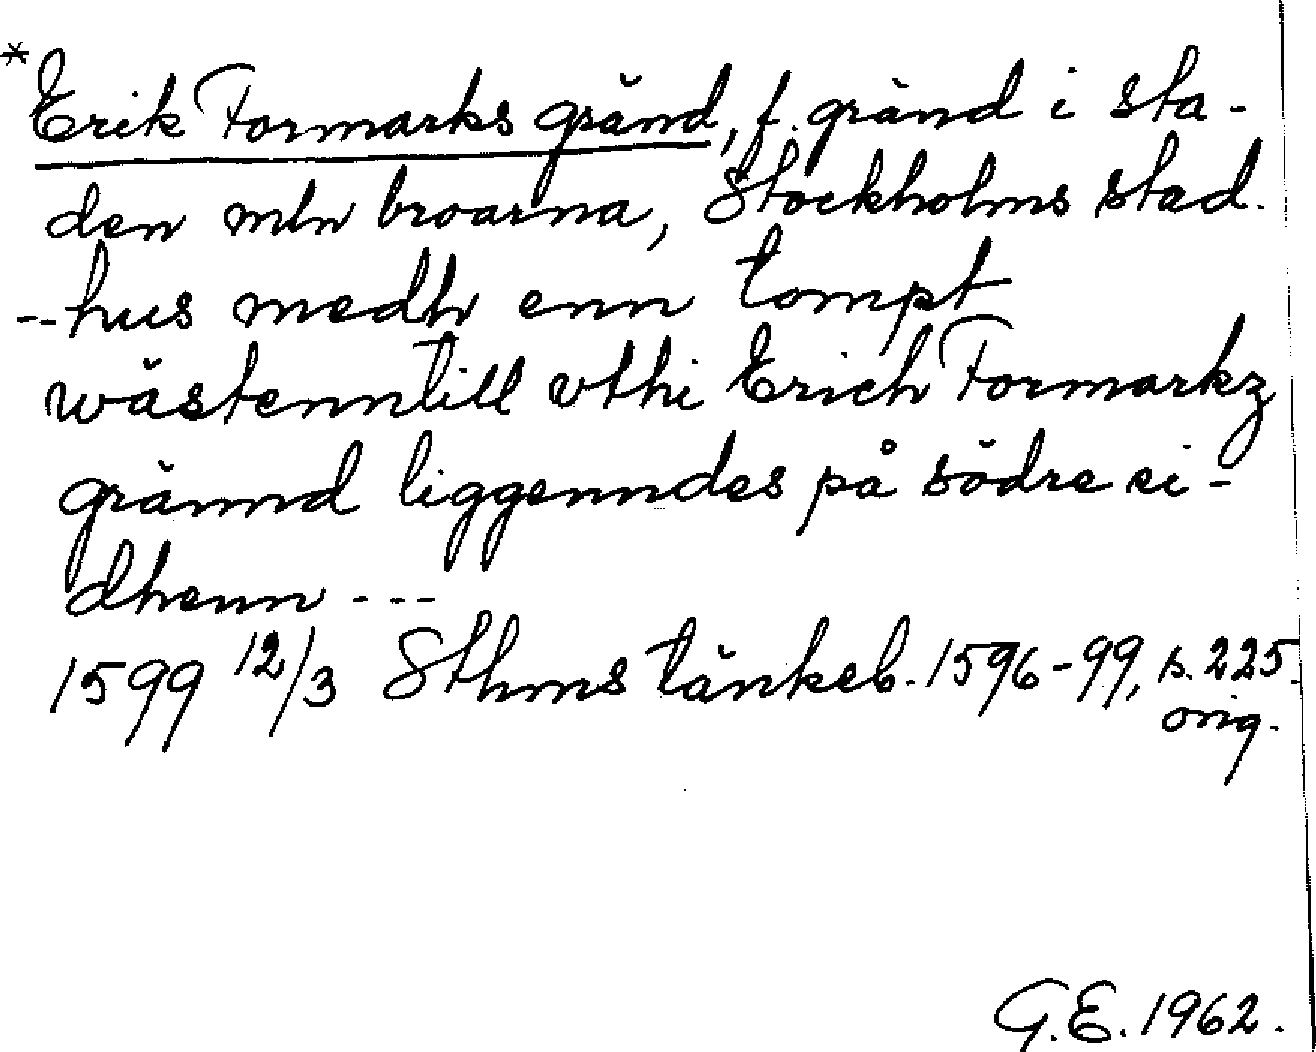 * Erik Formarks gränd, f. gränd i sta-
den mln broarna, Stockholms stad.
-- hus medh enn tompt
wästenntill vthi Erich Formarkz
grännd liggenndes på södre si-
dhenn ---
1599 12/3 Sthms tänkeb. 1596-99, s. 225.
orig.
G.E. 1962.